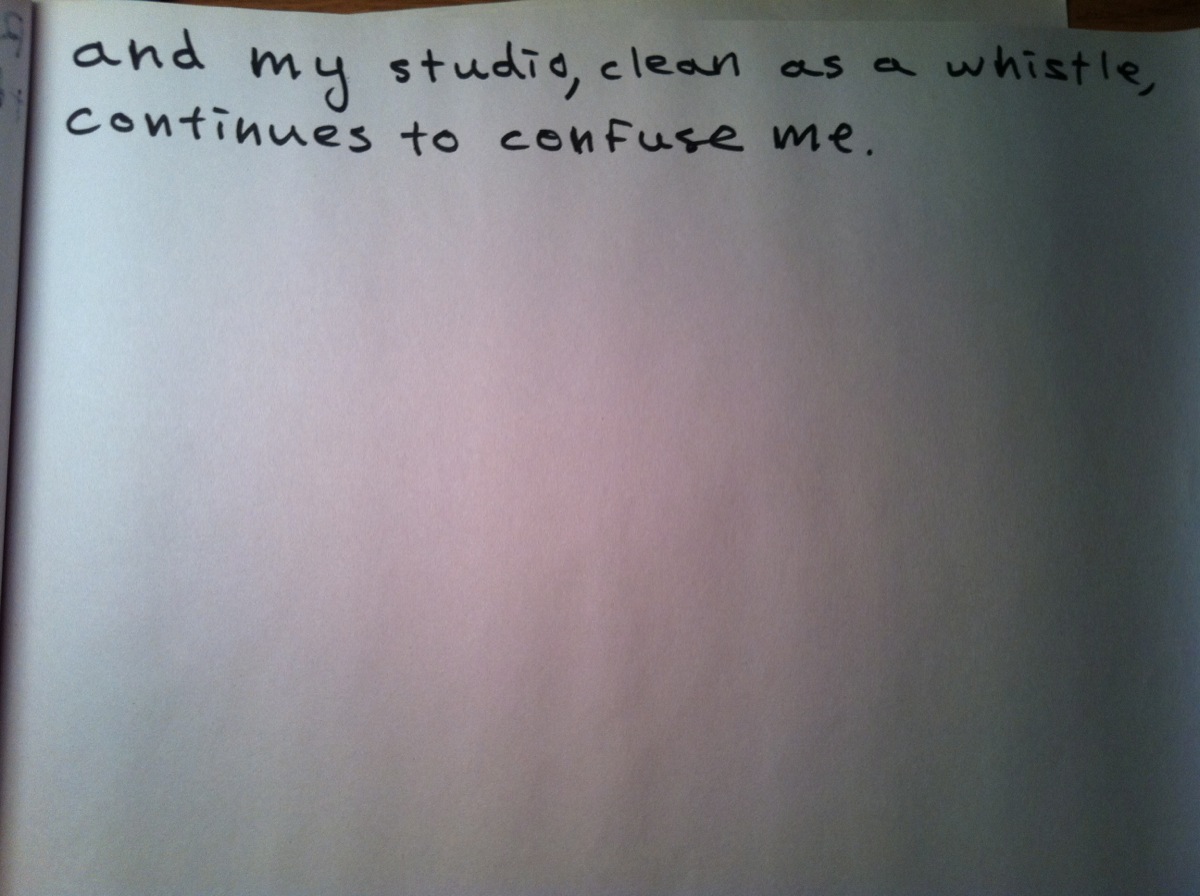 and my studio, clean as a whistle,
continues to confuse me.